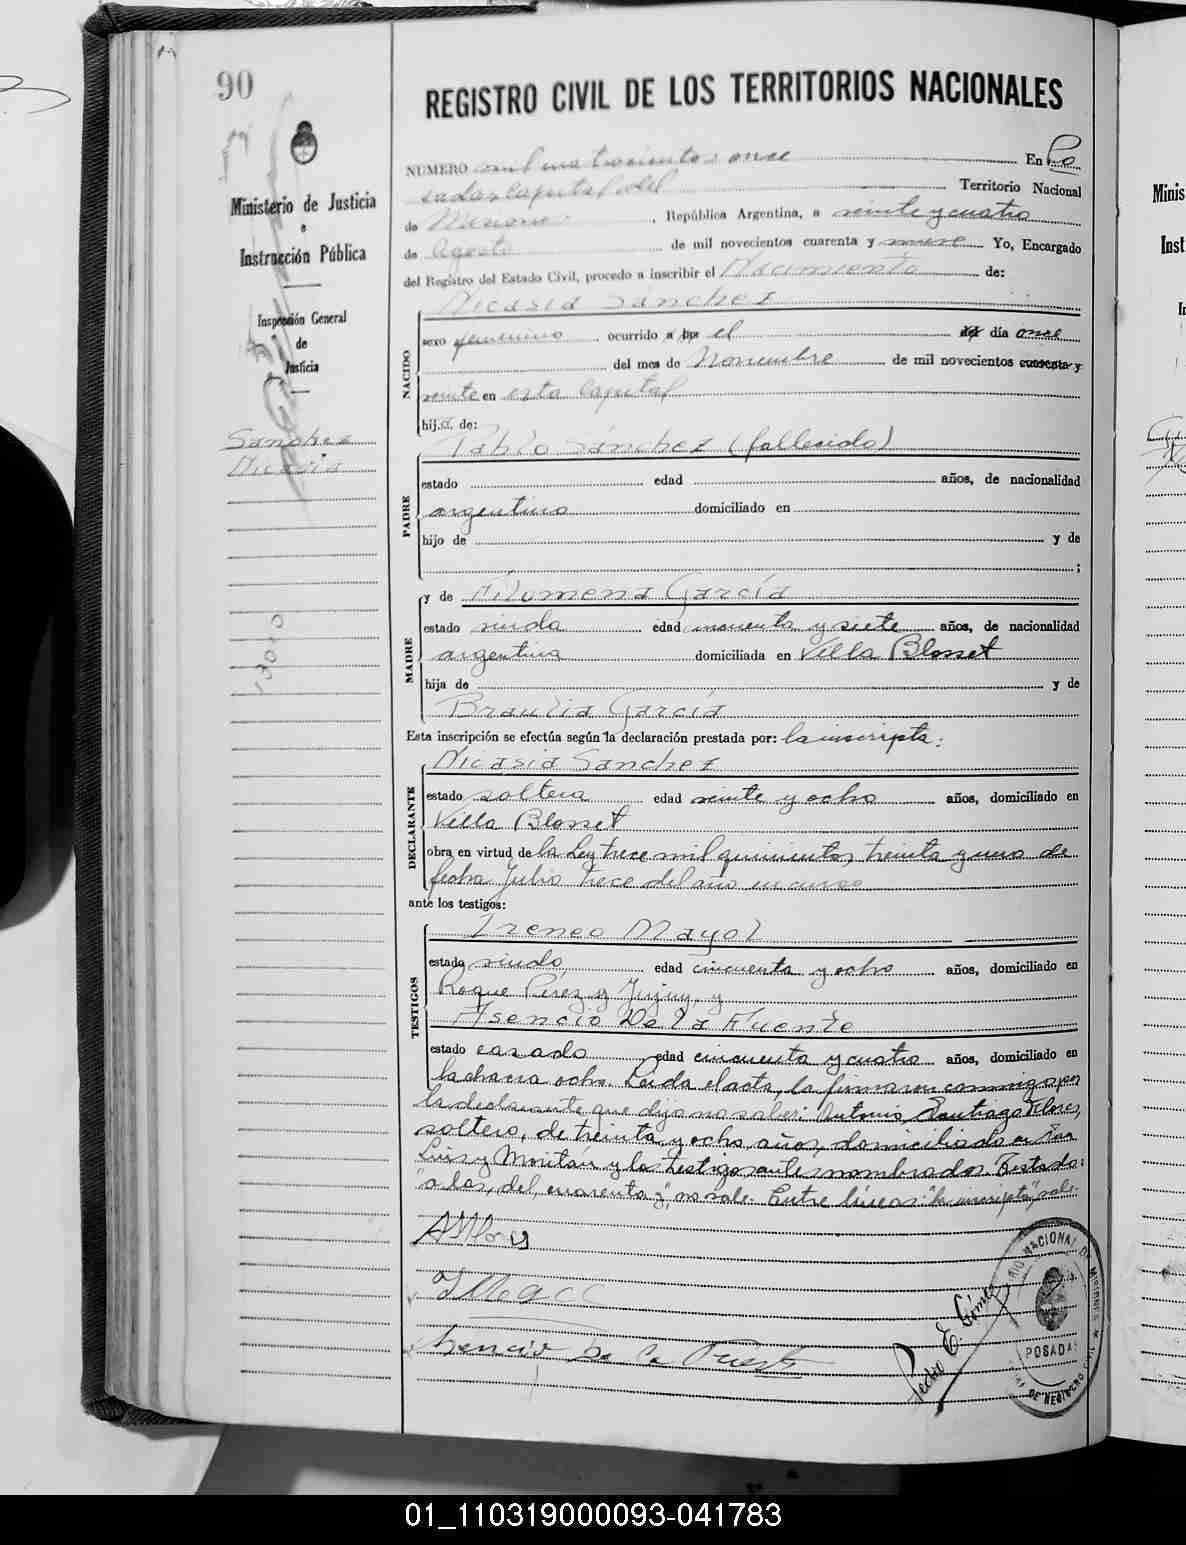 90
REGISTRO CIVIL DE LOS TERRITORIOS NACIONALES
Ministerio de Justicia
e
Instrucción Pública
Inspección General
de
Justicia
Sanchez
Nicasia
NUMERO mil trescientos once En Po
sadas capital del Territorio Nacional
de Misiones, República Argentina, a veinte y cuatro
de Agosto de mil novecientos cuarenta y nueve Yo, Encargado
del Registro del Estado Civil, procedo a inscribir el Nacimiento de:
Nicasia Sánchez
NACIDO
sexo femenino, ocurrido a las el del día once
del mes de Noviembre de mil novecientos cuarenta y
veinte en esta Capital
hija de:
Pablo Sánchez (fallecido)
PADRE
estado edad años, de nacionalidad
argentino domiciliado en
hijo de y de
;
MADRE
y de Filomena García
estado viuda edad cincuenta y siete años, de nacionalidad
argentina domiciliada en Villa Blosset
hija de y de
Braulia García
Esta inscripción se efectúa según la declaración prestada por: la inscripta:
DECLARANTE
Nicasia Sanchez
estado soltera edad veinte y ocho años, domiciliado en
Villa Blosset
obra en virtud de la Ley trece mil quinientos treinta y uno de
fecha Julio trece del año en curso
ante los testigos:
TESTIGOS
Ireneo Mayol
estado viudo edad cincuenta y ocho años, domiciliado en
Roque Perez y Jujuy, y
Asencio De la Fuente
estado casado edad cincuenta y cuatro años, domiciliado en
la chacra ocho. Leida el acta, la firmaron conmigo por
la declarante que dijo no saber: Antonio Santiago Flores,
soltero, de treinta y ocho años, domiciliado en San
Luis y Moritán y los testigos ante nombrados. Testado:
"a las, del, cuarenta y", no vale. Entre lineas: "la inscripta", vale.
Asencio De la Fuente
Pedro E. Gómez
NACIONAL DE MISIONES
POSADAS
DE REGISTRO CIVIL
Minis
Inst
01_110319000093-041783